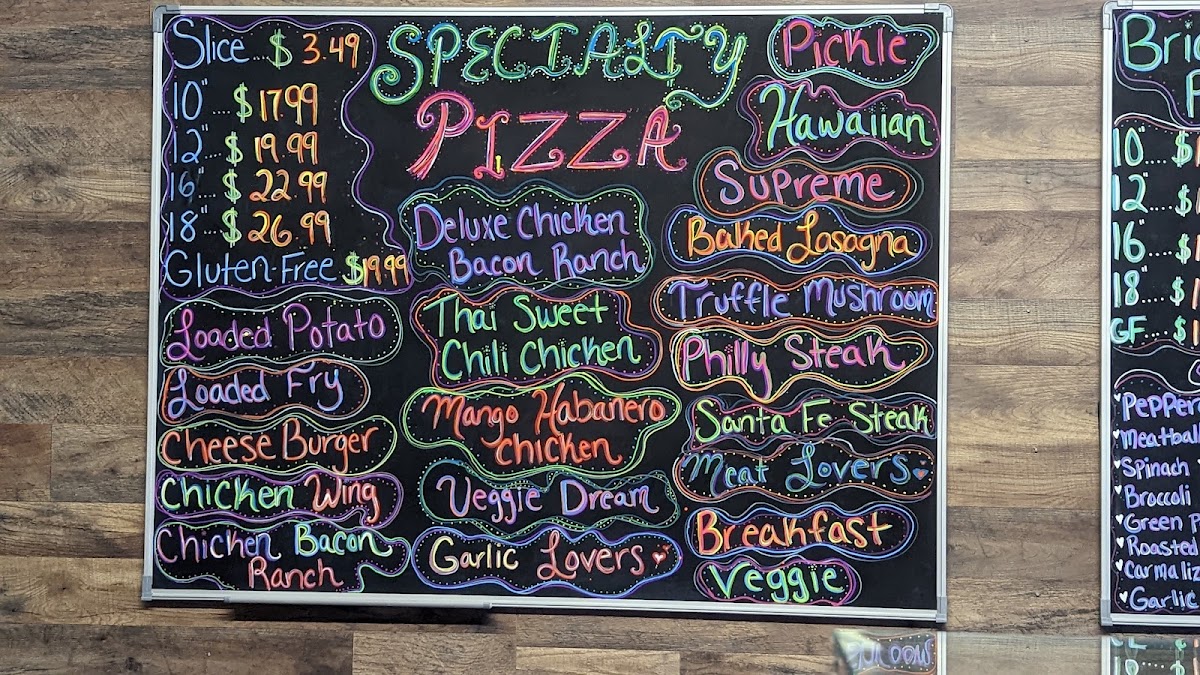 Slice...$ 3.49
10"...$17.99
12"...$19.99
16"...$22.99
18"...$26.99
Gluten-Free $19.99
Loaded Potato
Loaded Fry
Cheese Burger
Chicken Wing
Chicken Bacon
Ranch
SPECIALTY
PIZZA
Deluxe Chicken
Bacon Ranch
Thai Sweet
Chili Chicken
Mango Habanero
Chicken
Veggie Dream
Garlic Lovers
Pickle
Hawaiian
Supreme
Baked Lasagna
Truffle Mushroom
Philly Steak
Santa Fe Steak
Meat Lovers
Breakfast
Veggie
10"...$
12"...$
16"...$
18"...$
GF...$
Meatball
Spinach
Broccoli
Green
Roasted
Garlic